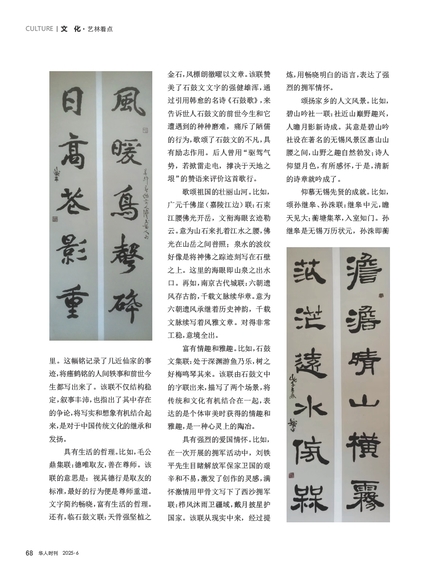 CULTURE | 文 化 · 艺林着点
風暖鳥聲碎
日高花影重
里。这幅铭记录了几近仙家的事
迹，将瘗鹤铭的人间轶事和前世今
生都写出来了。该联不仅结构稳
定，叙事丰沛，也指出了其中存在
的争论，将写实和想象有机结合起
来，是对于中国传统文化的继承和
发扬。
具有生活的哲理。比如，毛公
鼎集联：德唯取友，善在尊师。该
联的意思是：视其德行是取友的
标准，最好的行为便是尊师重道。
文字简约畅晓，富有生活的哲理。
还有，临石鼓文联：天骨强坚植之
金石，风棚朗徹曜以文章。该联赞
美了石鼓文文字的强健雄浑，通
过引用韩愈的名诗《石鼓歌》，来
告诉世人石鼓文的前世今生和它
遭遇到的种种磨难，痛斥了陋儒
的行为，歌颂了石鼓文的不凡，具
有励志作用。后人曾用“驱驾气
势，若掀雷走电，撑决于天地之
垠”的赞语来评价这首歌行。
歌颂祖国的壮丽山河。比如，
广元千佛崖（嘉陵江边）联：石束
江腰佛光开岳，文袍海眼玄迹勒
云。意为山石来扎着江水之腰，佛
光在山岳之间普照；泉水的波纹
好像是将神佛之踪迹刻写在石壁
之上。这里的海眼即山泉之出水
口。再如，南京古代城联：六朝遗
风存古韵，千载文脉续华章。意为
六朝遗风承继着历史神韵，千载
文脉续写着风雅文章。对得非常
工稳，意境全出。
富有情趣和雅趣。比如，石鼓
文集联：处于深渊游鱼乃乐，树之
好梅鸣琴其来。该联由石鼓文中
的字联出来，描写了两个场景，将
传统和文化有机结合在一起，表
达的是个体审美时获得的情趣和
雅趣，是一种心灵上的陶冶。
具有强烈的爱国情怀。比如，
在一次开展的拥军活动中，刘铁
平先生目睹解放军保家卫国的艰
辛和不易，激发了创作的灵感，满
怀激情用甲骨文写下了西沙拥军
联：栉风沐雨卫疆域，戴月披星护
国家。该联从现实中来，经过提
炼，用畅晓明白的语言，表达了强
烈的拥军情怀。
颂扬家乡的人文风景。比如，
碧山吟社一联：社近山巅野趣兴，
人瞻月影新诗成。其意是碧山吟
社设在著名的无锡风景区惠山山
腰之间，山野之趣自然勃发；诗人
仰望月色，有所感怀，于是，清新
的诗章就吟成了。
仰慕无锡先贤的成就。比如，
颂孙继皋、孙洙联：继皋中元，瞻
天见大；蘅塘集萃，入室知门。孙
继皋是无锡万历状元，孙洙即蘅
澹澹晴山橫霧
茫茫遠水
68 华人时刊 2025·6